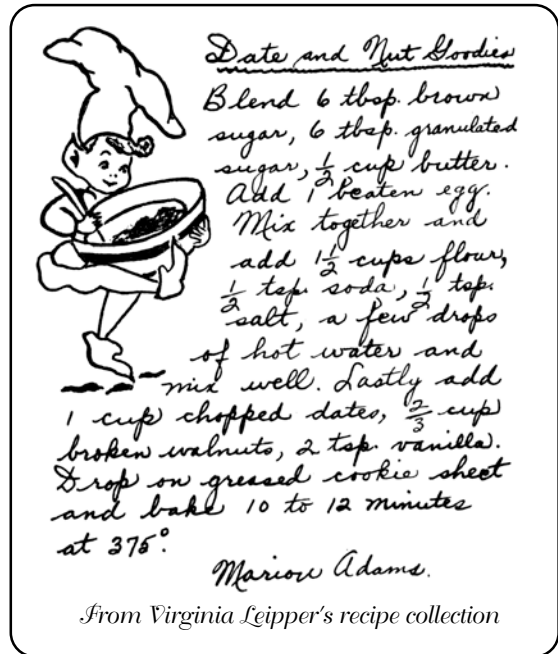 Date and Nut Goodies
Blend 6 tbsp. brown
sugar, 6 tbsp. granulated
sugar, 1/2 cup butter.
Add 1 beaten egg.
Mix together and
add 1 1/2 cups flour,
1/2 tsp. soda, 1/2 tsp.
salt, a few drops
of hot water and
mix well. Lastly add
1 cup chopped dates, 2/3 cup
broken walnuts, 2 tsp. vanilla.
Drop on greased cookie sheet
and bake 10 to 12 minutes
at 375°.
Marion Adams.
From Virginia Leipper's recipe collection